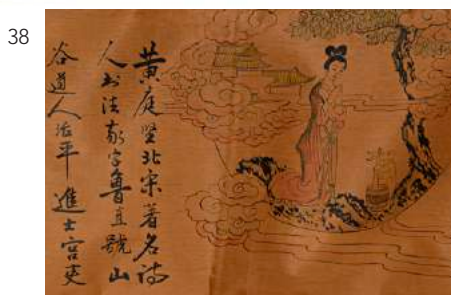 38
黄庭坚北宋著名诗
人书法家字鲁直號山
谷道人治平進士官吏